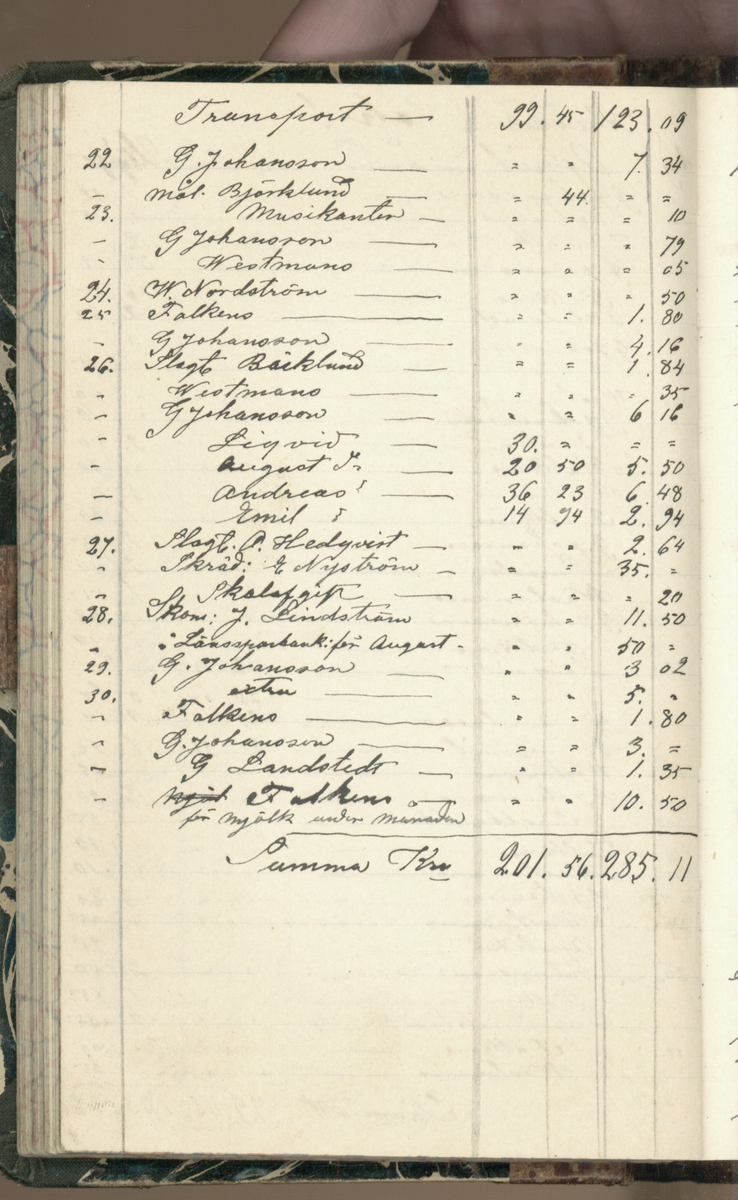 Transport — 99. 45 123. 09
22 G. Johansson — " " 7. 34
- Mål. Björklund — " 44. " "
23. Musikanten — " " " 10
- G Johansson — " " " 79
- Westmans " " " 05
24. W. Nordström — " " " 50
25 Falkens — " " 1. 80
- G Johansson — " " 4. 16
26. Slagt Bäcklund — " " 1. 84
" Westmans — " " " 35
" G Johansson — " " 6 16
- Liqvid — 30. " " "
- August — 20 50 5. 50
- Andreas — 36 23 6. 48
- Emil 14 94 2. 94
27. Slagt. P. Hedqvist — " " 2. 64
" Skräd: E Nyström — " " 35. "
- Skolafgift " " " 20
28. Skom: J. Lindström " " 11. 50
" Länssparbank: för August - " " 50 "
29. G. Johansson — " " 3 02
30. extra — " " 5. "
- Falkens — " " 1. 80
- G. Johansson — " " 3. "
- G Landstedt — " " 1. 35
- Falkens " " 10. 50
för mjölk under månaden
Summa Kr 201. 56. 285. 11